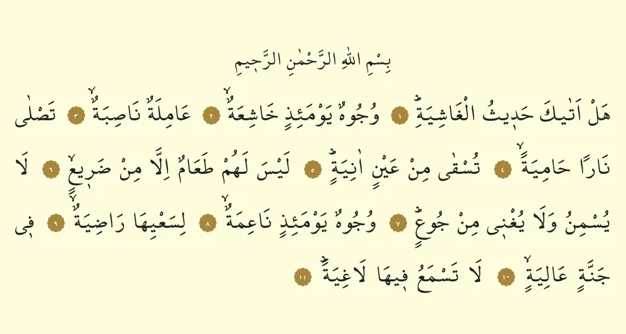 بِسْمِ اللهِ الرَّحْمٰنِ الرَّح۪يمِ
هَلْ اَتٰيكَ حَد۪يثُ الْغَاشِيَةِۜ ﴿١﴾ وُجُوهٌ يَوْمَئِذٍ خَاشِعَةٌۙ ﴿٢﴾ عَامِلَةٌ نَاصِبَةٌۙ ﴿٣﴾ تَصْلٰى
نَارًا حَامِيَةًۙ ﴿٤﴾ تُسْقٰى مِنْ عَيْنٍ اٰنِيَةٍۜ ﴿٥﴾ لَيْسَ لَهُمْ طَعَامٌ اِلَّا مِنْ ضَر۪يعٍۙ ﴿٦﴾ لَا
يُسْمِنُ وَلَا يُغْن۪ى مِنْ جُوعٍۜ ﴿٧﴾ وُجُوهٌ يَوْمَئِذٍ نَاعِمَةٌۙ ﴿٨﴾ لِسَعْيِهَا رَاضِيَةٌۙ ﴿٩﴾ ف۪ى
جَنَّةٍ عَالِيَةٍۙ ﴿١٠﴾ لَا تَسْمَعُ ف۪يهَا لَاغِيَةًۜ ﴿١١﴾